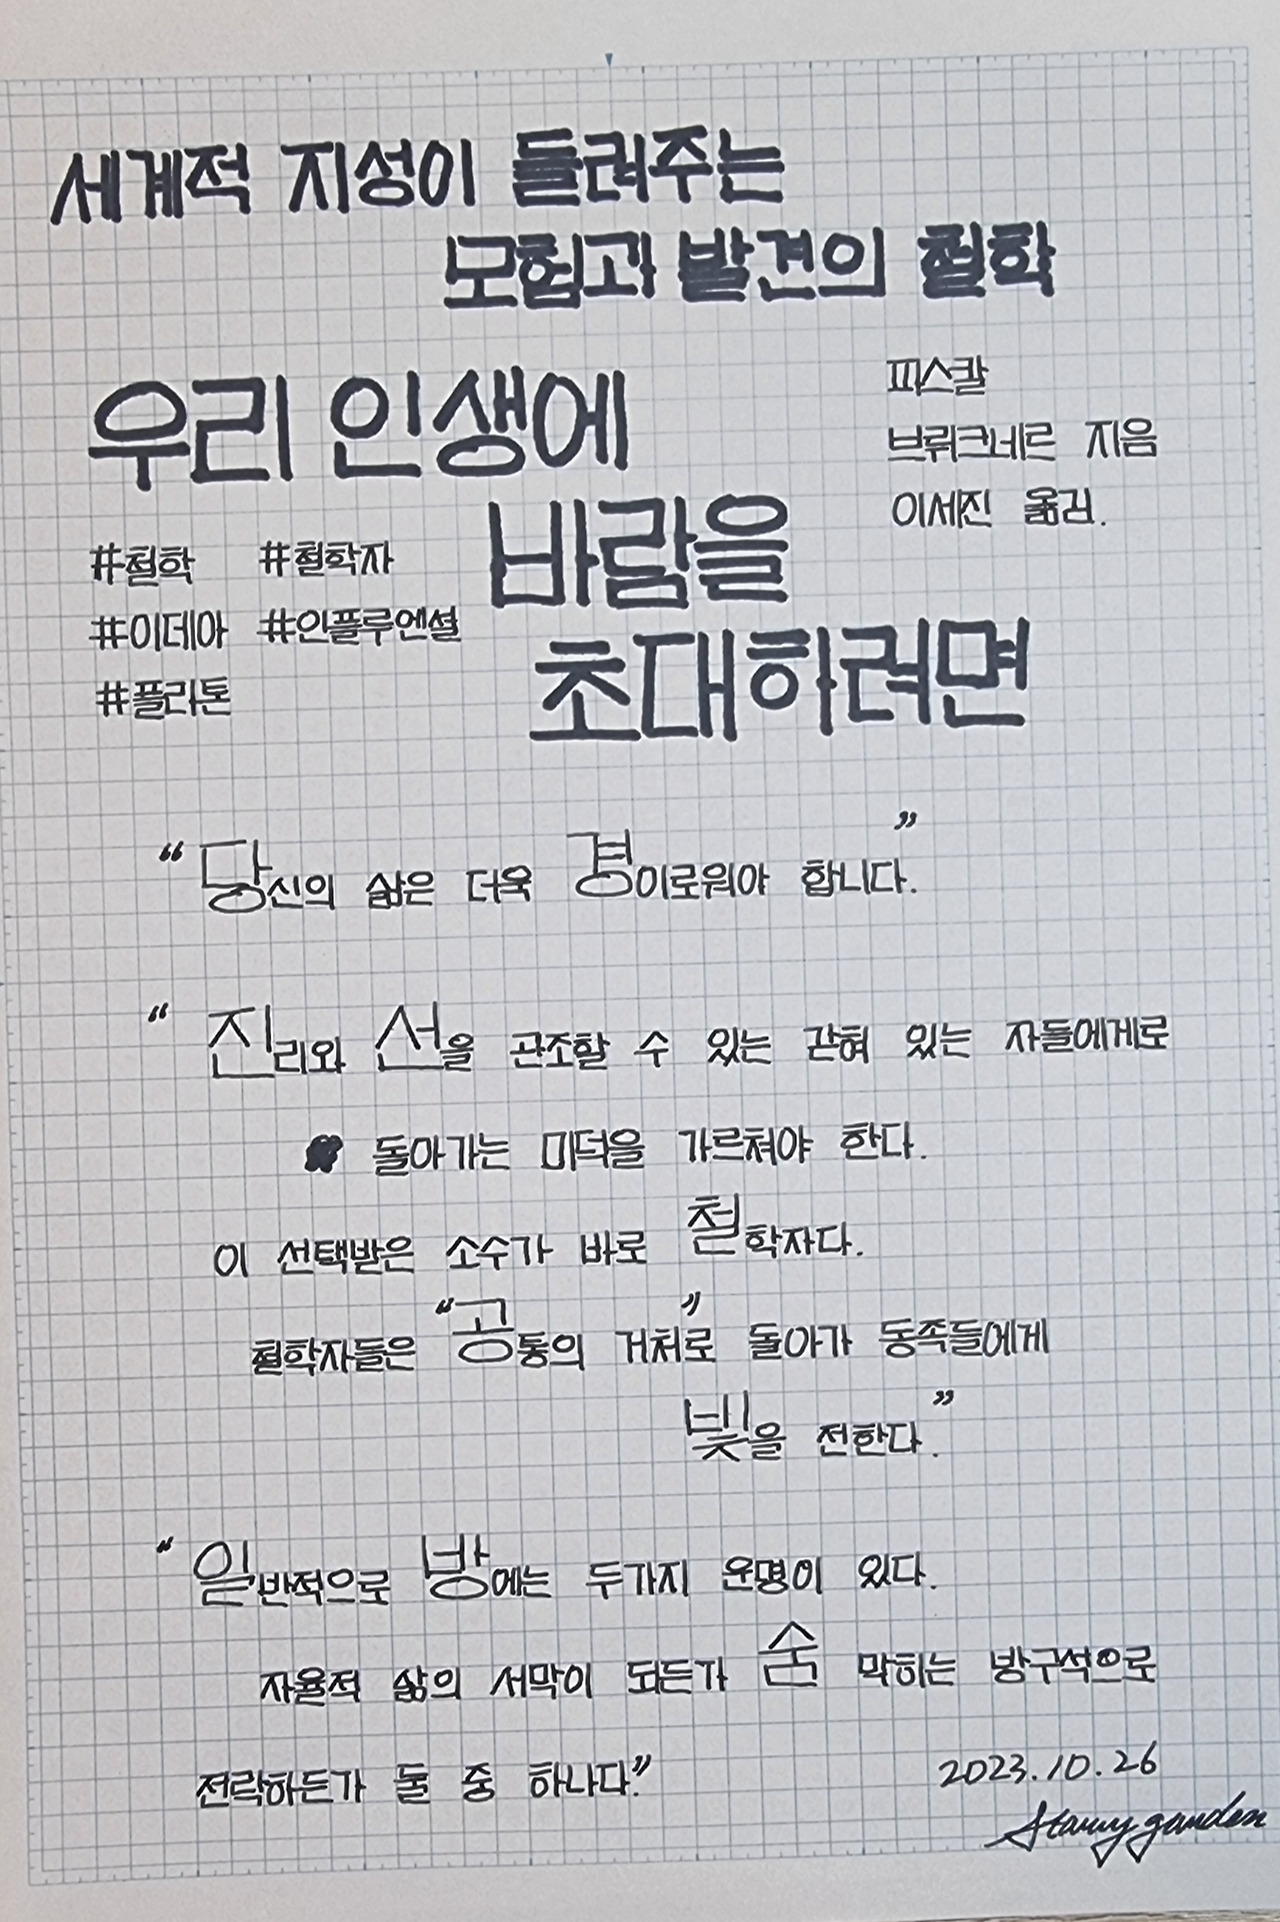 세계적 지성이 들려주는
모험과 발견의 철학
우리 인생에
바람을
초대하려면
피스칼
브뤼크네르 지음
이세진 옮김.
#철학 #철학자
#이데아 #인플루엔셜
#플라톤
“당신의 삶은 더욱 경이로워야 합니다.”
“진리와 선을 관조할 수 있는 갇혀 있는 자들에게로
돌아가는 미덕을 가르쳐야 한다.
이 선택받은 소수가 바로 철학자다.
철학자들은 “공통의 거처”로 돌아가 동족들에게
빛을 전한다.”
“일반적으로 방에는 두가지 운명이 있다.
자율적 삶의 서막이 되든가 숨 막히는 방구석으로
전락하든가 둘 중 하나다.”
2023.10.26